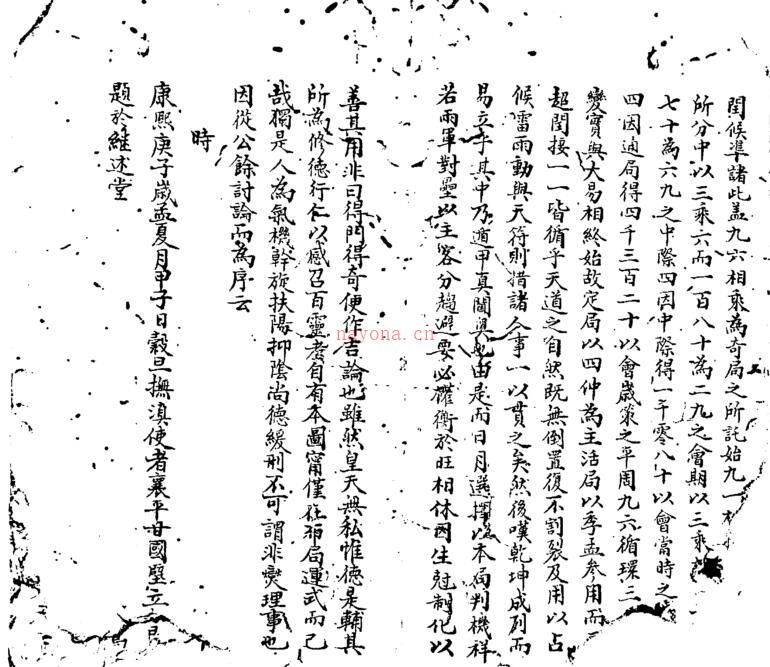 閏候準諸此蓋九六相乘為奇局之所託始九一
所分中以三乘六而一百八十為二九之會期以三乘
七十為六九之中際四因中際得一千零八十以會當時之
四因通局得四千三百二十以會歲策之平周九六循環三
變實與大易相終始故定局以四仲為主活局以季孟參用而
超閏接一一皆循乎天道之自然既無倒置復不割裂及用以占
候雷雨動與天符則措諸人事一以貫之矣然後嘆乾坤成列而
易立乎其中乃遁甲真閫奧也由是而日月選擇以本局判機祥
若兩軍對壘以主客分趨避要必權衡於旺相休囚生尅制化以
善其用非曰得門得奇便作吉論也雖然皇天無私惟德是輔其
所為修德行仁以感召百靈者自有本圖甯僅在布局運式而已
哉獨是人為氣機斡旋扶陽抑陰尚德緩刑不可謂非燮理事也
因從公餘討論而為序云
時
康熙庚子歲孟夏月甲子日穀旦撫滇使者襄平甘國璧立
題於維述堂
nayona.cn